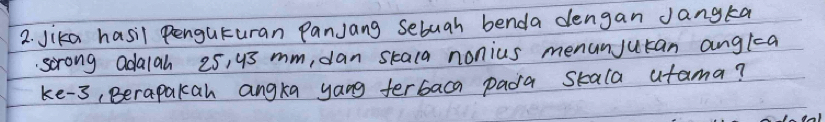 2. Jika hasil Pengukuran Panjang Sebuah benda dengan Jangka
sorong adalah 25,43 mm, dan skala nonius menunjukan angka
ke-3, Berapakah angka yang terbaca pada skala utama?